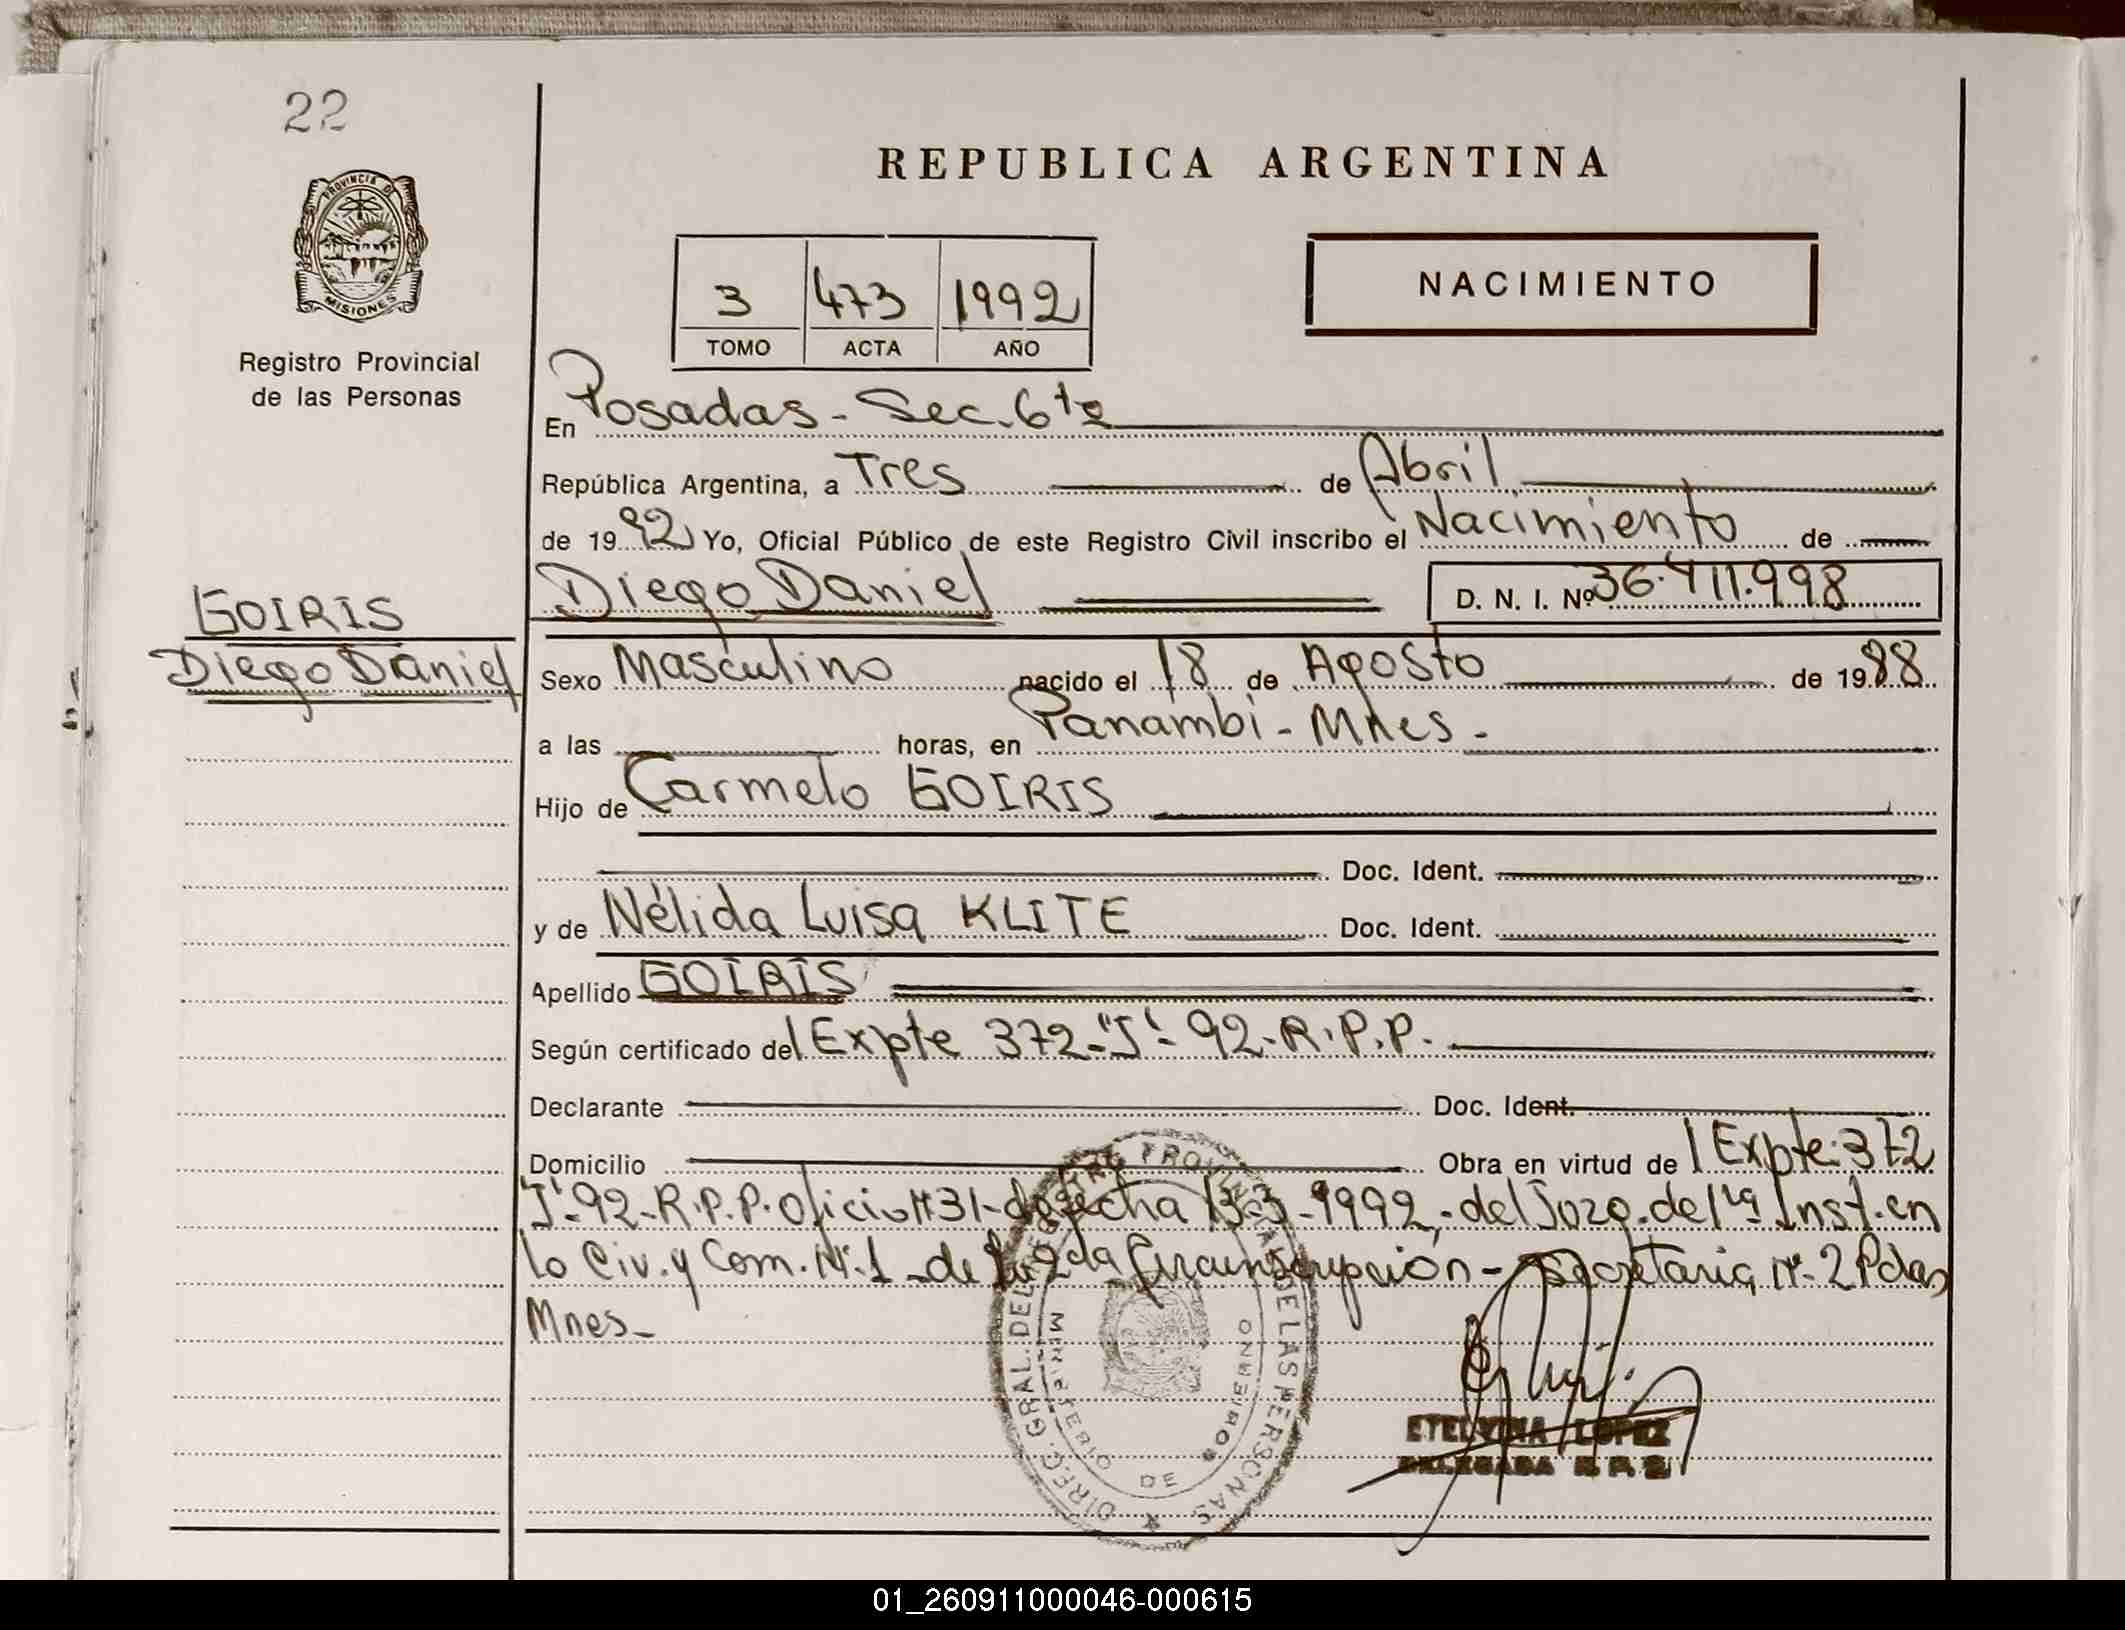 22
PROVINCIA DE
MISIONES
Registro Provincial
de las Personas
GOIRIS
Diego Daniel
REPUBLICA ARGENTINA
3 473 1992
TOMO ACTA AÑO
NACIMIENTO
En Posadas - Sec. 6ta
República Argentina, a Tres de Abril
de 1992 Yo, Oficial Público de este Registro Civil inscribo el Nacimiento de
Diego Daniel D. N. I. Nº 36.411.998
Sexo Masculino nacido el 18 de Agosto de 1988
a las horas, en Panambi - Mnes -
Hijo de Carmelo GOIRIS
Doc. Ident.
y de Nélida Luisa KLITE Doc. Ident.
Apellido GOIRIS
Según certificado del Expte 372-"J"- 92-R.P.P.
Declarante Doc. Ident.
Domicilio Obra en virtud de l Expte. 372
"J"-92-R.P.P. Oficio Nº 31- de fecha 13-3-1992,- del Juzg. de 1ra Inst. en
lo Civ. y Com. Nº 1 - de la 2da Circunscripción - Secretaria Nº 2 Pdas
Mnes -
DIREC. GRAL. DEL REGISTRO PROVINCIAL DE LAS PERSONAS
MINISTERIO DE GOBIERNO
ETELVINA LOPEZ
DELEGADA R. P. P.
01_260911000046-000615